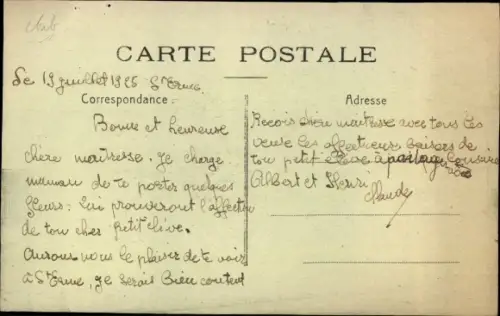 CARTE POSTALE
Le 19 juillet 1926 St
Correspondance
Bonne et heureuse
chère maîtresse. Je charge
maman de te porter quelques
fleurs : qui prouveront l'affection
de ton cher petit élève.
Aurons nous le plaisir de te voir
à St , je serais bien content
Adresse
Reçois chère maîtresse avec tous les
veux les affectueux baisers de
ton petit élève à partager
Albert et Henri
Claude